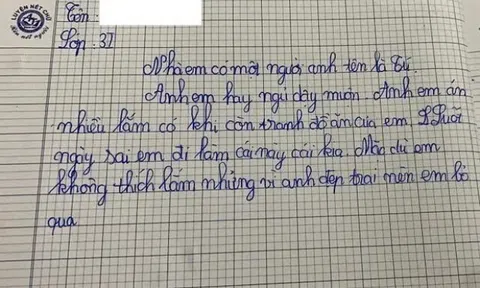 LUYỆN NÉT CHỮ
Rèn nết người
Tên :
Lớp : 3I
Nhà em có một người anh tên là Tú
Anh em hay ngủ dậy muộn. Anh em ăn
nhiều lắm có khi còn tranh đồ ăn của em. Suốt
ngày sai em đi làm cái này cái kia. Mặc dù em
không thích lắm nhưng vì anh đẹp trai nên em bỏ
qua